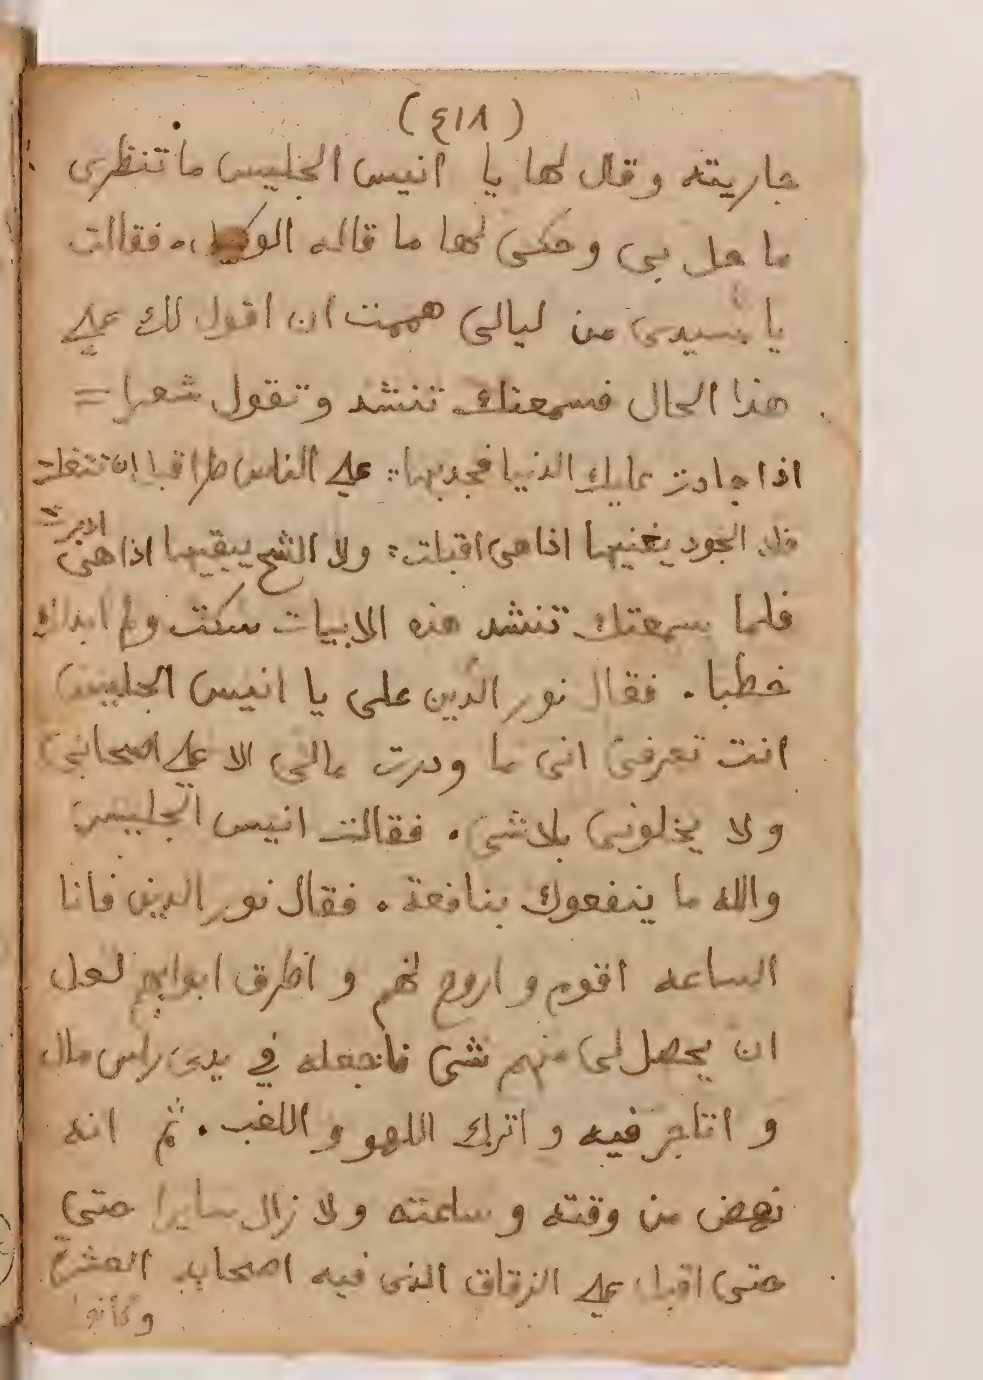 (٤١٨)
جاريته وقال لها يا انيس الجليس ما تنظرى
ما حل بى وحكى لها ما قاله الوكيل. فقالت
يا سيدى من ليالى هممت ان اقول لك على
هذا الحال فسمعتك تنشد وتقول شعرا =
اذا جادت عليك الدنيا فجد بها : على الناس طرا قبل ان تتفلت
فلا الجود يفنيها اذا هى اقبلت : ولا الشح يبقيها اذا هى ادبرت
فلما سمعتك تنشد هذه الابيات سكت ولم ابدلك
خطبا . فقال نور الدين على يا انيس الجليس
انت تعرفى انى ما ودرت مالى الا على اصحابى
ولا يخلونى بلاشى . فقالت انيس الجليس
والله ما ينفعوك بنافعة . فقال نور الدين فانا
الساعه اقوم واروح لهم و اطرق ابوابهم لعل
ان يحصل لى منهم شى فاجعله في يدى راس مال
و اتاجر فيه و اترك اللهو و اللعب . ثم انه
نهض من وقته و ساعته ولا زال سايرا حتى
حتى اقبل على الزقاق الذى فيه اصحابه العشرة
وكانوا